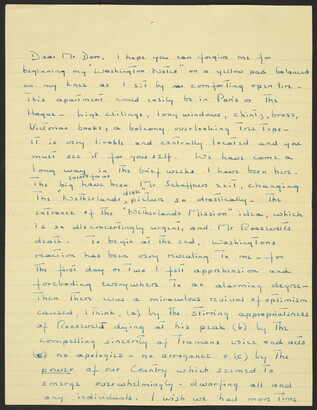 Dear Mr Dorr, I hope you can forgive me for
beginning my "Washington Notes" on a yellow pad balanced
on my knee as I sit by a comforting open fire -
this apartment could easily be in Paris or The
Hague - high ceilings, long windows, chintz, brass,
Victorian books, a balcony overlooking tree tops -
It is very livable and centrally located and you
must see it for yourself. We have come a
long way in the brief weeks I have been here.
The big have been Mr Schaffners exit, changing
The Netherlands desk picture so drastically - The
entrance of the "Netherlands Mission" idea, which
is so disconcertingly urgent, and Mr Roosevelts
death - To begin at the end, Washingtons
reaction has been very revealing to me - for
the first day or two I felt apprehension and
foreboding everywhere to an alarming degree -
Then there was a miraculous revival of optimism
caused, I think, (a) by the stirring appropriateness
of Roosevelt dying at his peak (b) by the
compelling sincerity of Trumans voice and acts
no apologies - no arrogance + (c) by the
power of our Country which seemed to
emerge overwhelmingly - dwarfing all and
any individuals. I wish we had more time